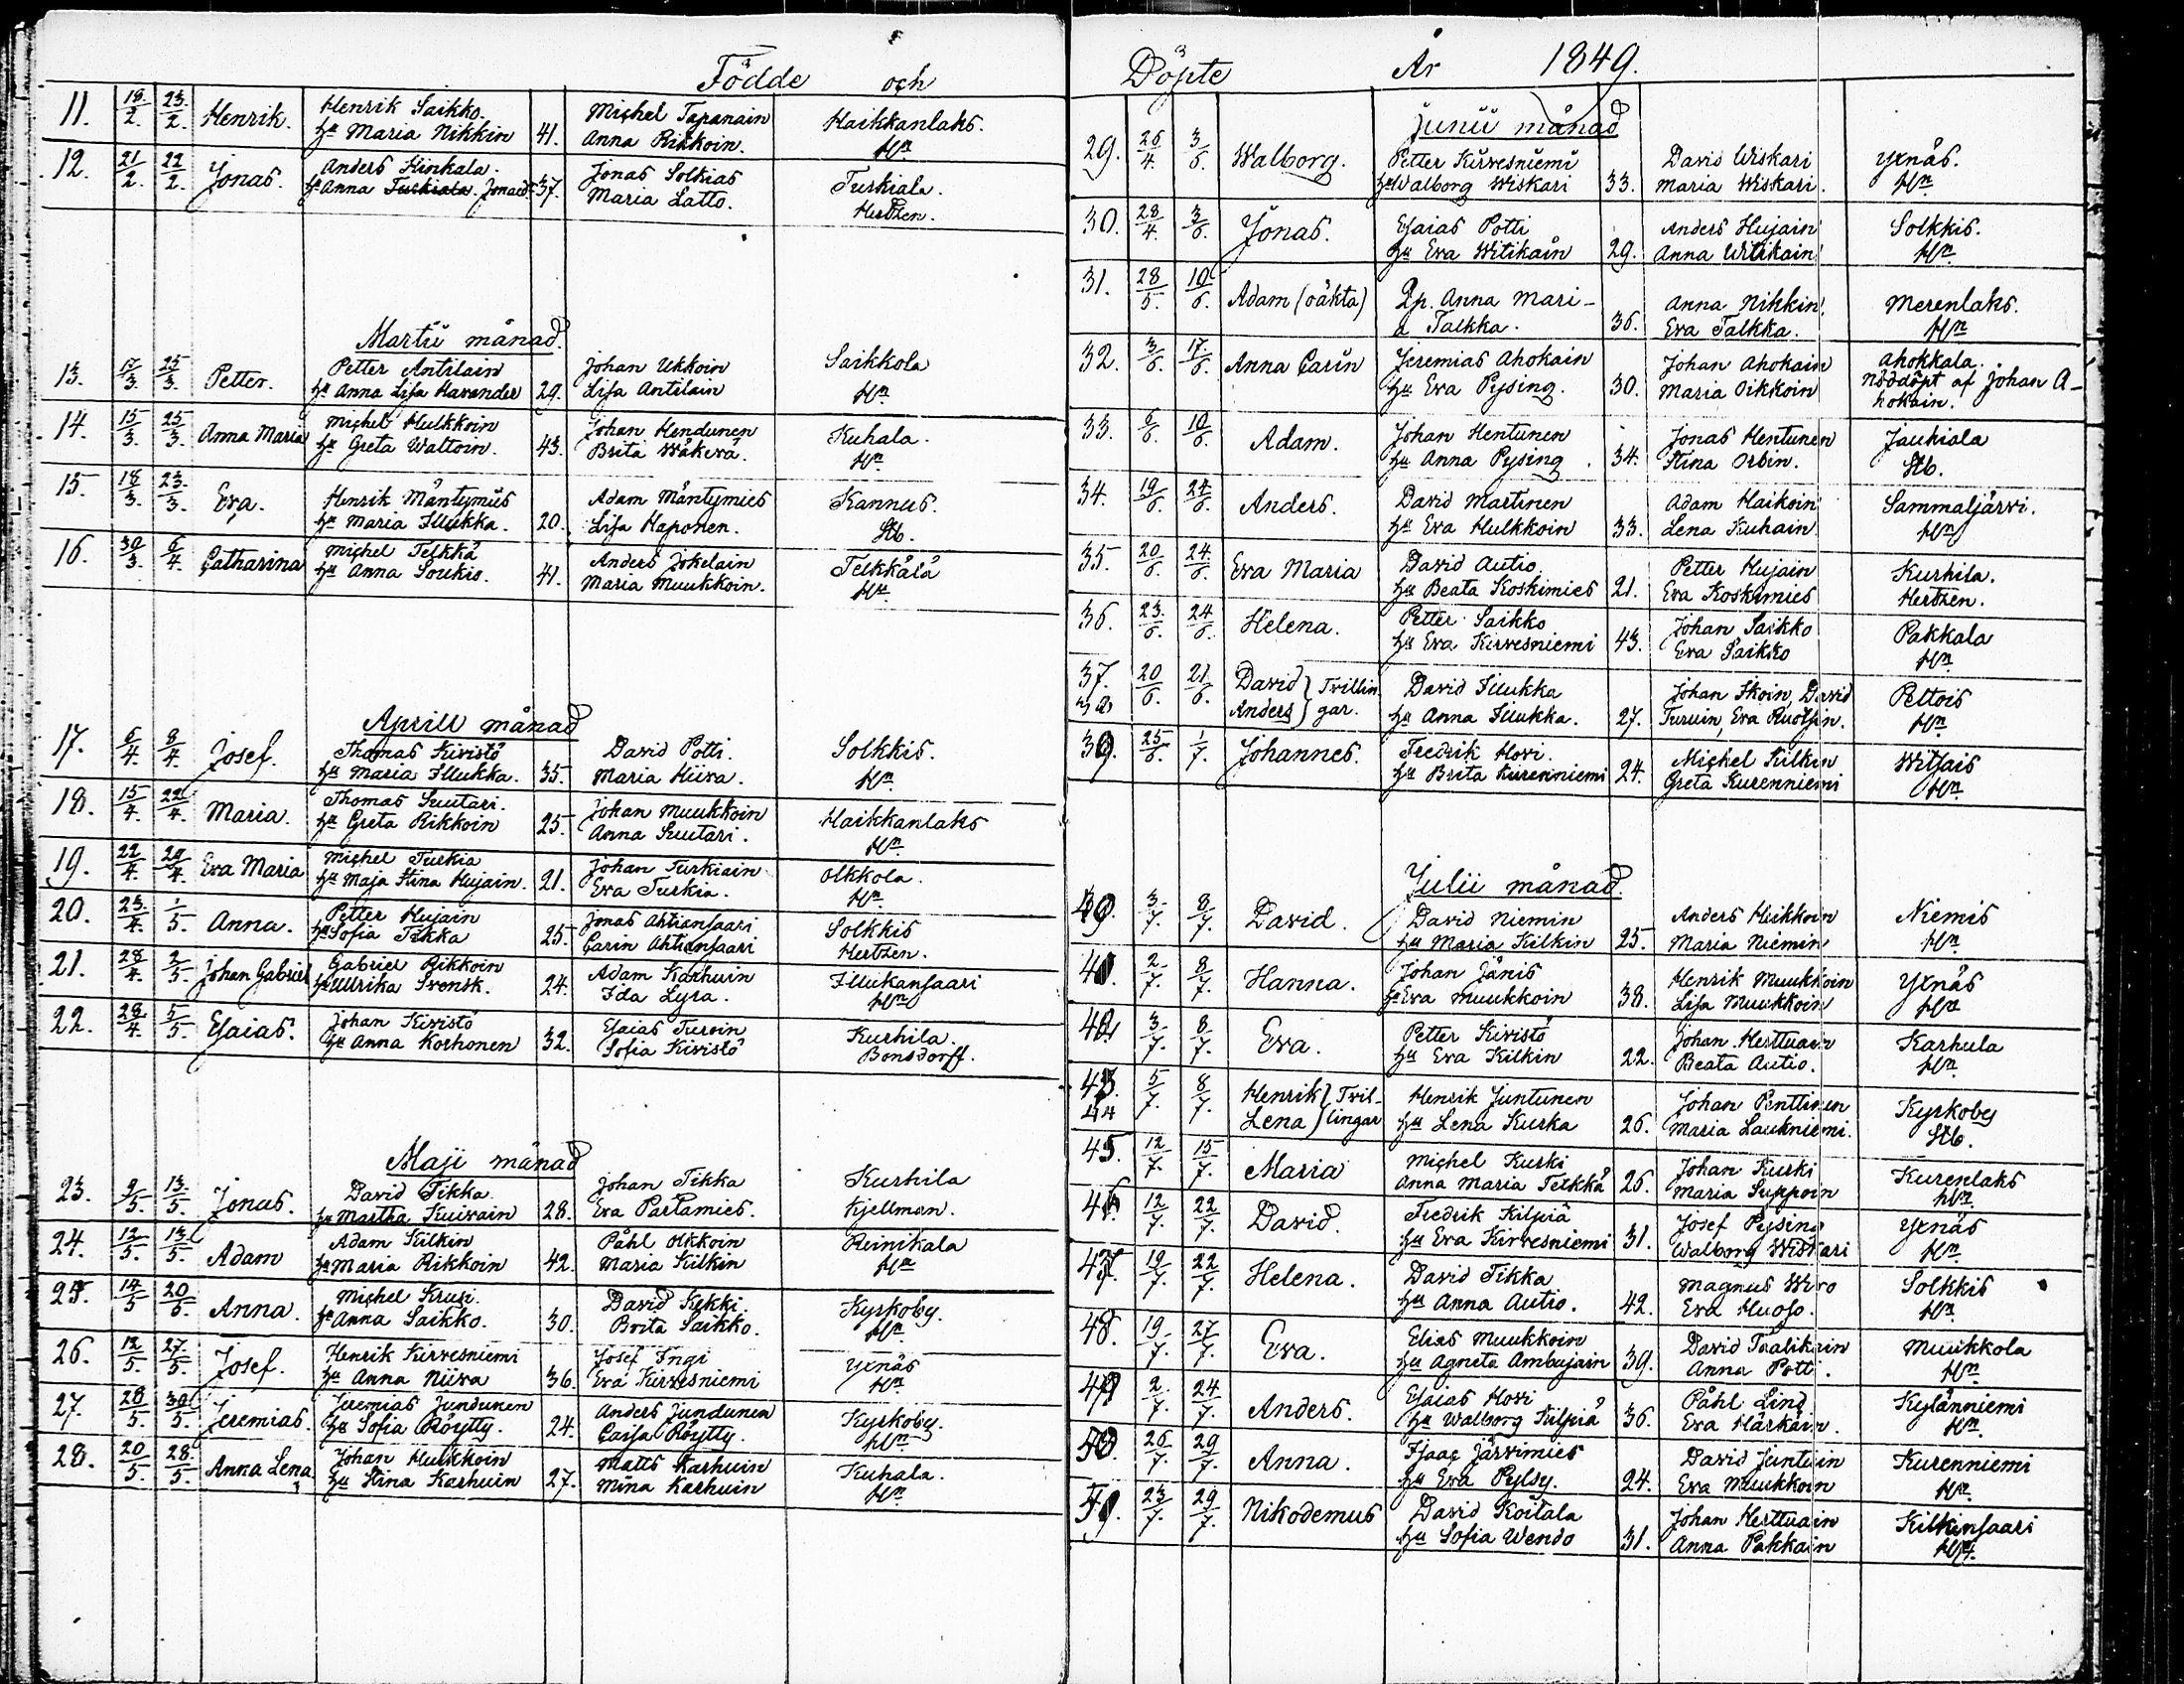 Födde och
11. 18/2. 23/2. Henrik. Henrik Saikko. Michel Tapanain Haikkanlaks.
hu Maria Nikkin 41. Anna Rikkoin. Hn.
12. 21/2. 22/2. Jonas. Anders Hinkala. Jonas Solkias Turkiala.
hu Anna Turkiala Jonasd. 37. Maria Latto. Hertzen.
Martii månad.
13. 17/3. 25/3. Petter. Petter Antilain Johan Ukkoin Saikkola
hu Anna Lisa Havander 29. Lisa Antilain Hn.
14. 15/3. 25/3. Anna Maria Michel Hulkkoin Johan Hendunen Kuhala.
hu Greta Wattoin. 43. Brita Wäkevä. Hn.
15. 18/3. 23/3. Eva. Henrik Mäntymies Adam Mäntymies Kannus.
hu Maria Illukka. 20. Lisa Haponen. Stb.
16. 30/3. 6/4. Catharina Michel Telkkä Anders Jokelain Telkkälä
hu Anna Soukio. 41. Maria Muukkoin. Hn.
Aprill månad
17. 6/4. 8/4. Josef. Thomas Kivistö David Potti. Solkkis.
hu Maria Illukka. 35. Maria Hiiva. Hn.
18. 15/4. 22/4. Maria. Thomas Suutari. Johan Muukkoin Haikkanlaks
hu Greta Rikkoin 25. Anna Suutari. Hn.
19. 22/4. 29/4. Eva Maria Michel Turkia Johan Turkiain Olkkola.
hu Maja Stina Hujain. 21. Eva Turkia. Hn.
20. 23/4. 1/5. Anna. Petter Hujain Jonas Ahtiansaari Solkkis
hu Sofia Tikka 25. Carin Ahtiansaari Hertzen.
21. 28/4. 2/5. Johan Gabriel Gabriel Rikkoin Adam Karhuin Illukansaari
hu Ullrika Svensk. 24. Ida Lyra. Hn.
22. 28/4. 5/5. Esaias. Johan Kivistö Esaias Turvin Kurhila.
hu Anna Korhonen 32. Sofia Kivistö Bonsdorff.
Maji månad
23. 9/5. 13/5. Jonas. David Tikka. Johan Tikka Kurhila
hu Martha Kuivain 28. Eva Partamies. Kjellman.
24. 12/5. 13/5. Adam Adam Kilkin Påhl Olkkoin Reinikala
hu Maria Rikkoin 42. Maria Kilkin Hn
25. 14/5 20/5. Anna. Michel Krusi. David Kekki. Kyrkoby.
hu Anna Saikko. 30. Brita Saikko. Hn.
26. 12/5. 27/5. Josef. Henrik Kirvesniemi Josef Ingi Yxnäs
hu Anna Niiva 36. Eva Kirvesniemi Hn.
27. 28/5. 30/5. Jeremias. Jeremias Jundunen Anders Jundunen Kyrkoby.
hu Sofia Röytty. 24. Caisa Röytty. Hn.
28. 20/5. 28/5. Anna Lena Johan Hulkkoin Matts Karhuin Kuhala.
hu Stina Karhuin 27. Mina Karhuin Hn.
Döpte År 1849.
Junii månad
29. 26/4. 3/6. Walborg. Petter Kirvesniemi David Wiskari Yxnäs.
hu Walborg Wiskari 33. Maria Wiskari. Hn.
30. 28/4. 3/6. Jonas. Esaias Potti Anders Hujain Solkkis.
hu Eva Witikain 29. Anna Witikain Hn.
31. 28/5. 10/6. Adam (oäkta) Qp. Anna Mari- Anna Nikkin Merenlaks.
a Talkka. 36. Eva Talkka. Hn
32. 3/6. 17/6. Anna Carin Jeremias Ahokain Johan Ahokain Ahokkala.
hu Eva Pysing. 30. Maria Oikkoin Nöddöpt af Johan A-
hokain.
33. 6/6. 10/6. Adam. Johan Hentunen Jonas Hentunen Jaukiala
hu Anna Pysing. 34. Stina Orbin. Stb.
34. 19/6. 24/6. Anders. David Martinen Adam Haikoin Sammaljärvi.
hu Eva Hulkkoin 33. Lena Kuhain Hn
35. 20/6. 24/6. Eva Maria David Autio. Petter Hujain Kurhila.
hu Beata Koskimies 21. Eva Koskimies Hertzen.
36. 23/6. 24/6. Helena. Petter Saikko Johan Saikko Pakkala
hu Eva Kirvesniemi 43. Eva Saikko Hn.
37. 20/6. 21/6. David } Tvillin David Illukka Johan Skoin, David Peltois
38 Anders } gar. hu Anna Illukka. 27. Turvin, Eva Ruotsin. Hn.
39. 25/6. 1/7. Johannes. Fredrik Hovi. Michel Kilkin Witsais
hu Brita Kurenniemi 24. Greta Kurenniemi Hn.
Julii månad.
40. 3/7. 8/7. David. David Niemin Anders Heikkoin Niemis
hu Maria Kilkin 25. Maria Niemin Hn
41. 2/7. 8/7. Hanna. Johan Jänis Henrik Muukkoin Yxnäs
hu Eva Muukkoin 38. Lisa Muukkoin Hn
42. 3/7. 8/7. Eva. Petter Kivistö Johan Herttuain Karhula
hu Eva Kilkin 22. Beata Autio. Hn.
43. 5/7. 8/7. Henrik } Tvil- Henrik Juntunen Johan Penttinen Kyrkoby
44 Lena } lingar hu Lena Kurka 26. Maria Laukniemi. Stb.
45. 12/7. 15/7. Maria Michel Kurki Johan Kurki Kurenlaks
Anna Maria Telkkä 26. Maria Suppoin Hn.
46. 12/7. 22/7. David. Fredrik Kilpiä Josef Pysing Yxnäs
hu Eva Kirvesniemi 31. Walborg Wiskari Hn.
47. 19/7. 22/7. Helena. David Tikka Magnus Wiro Solkkis
hu Anna Autio. 42. Eva Huoso. Hn.
48. 19/7. 27/7. Eva. Elias Muukkoin David Taalikain Muukkola
hu Agneta Ambujain 39. Anna Potti. Hn.
49 2/7. 24/7. Anders. Esaias Hovi Påhl Lind. Kylänniemi
hu Walborg Kilpiä 36. Eva Härkäin. Hn.
50. 26/7. 29/7. Anna. Isaac Järvimies David Juntuin Kurenniemi
hu Eva Pylsy. 24. Eva Muukkoin Hn.
51. 23/7. 29/7. Nikodemus David Koitala Johan Herttuain Kilkinsaari
hu Sofia Wendo 31. Anna Pakkain Hn.